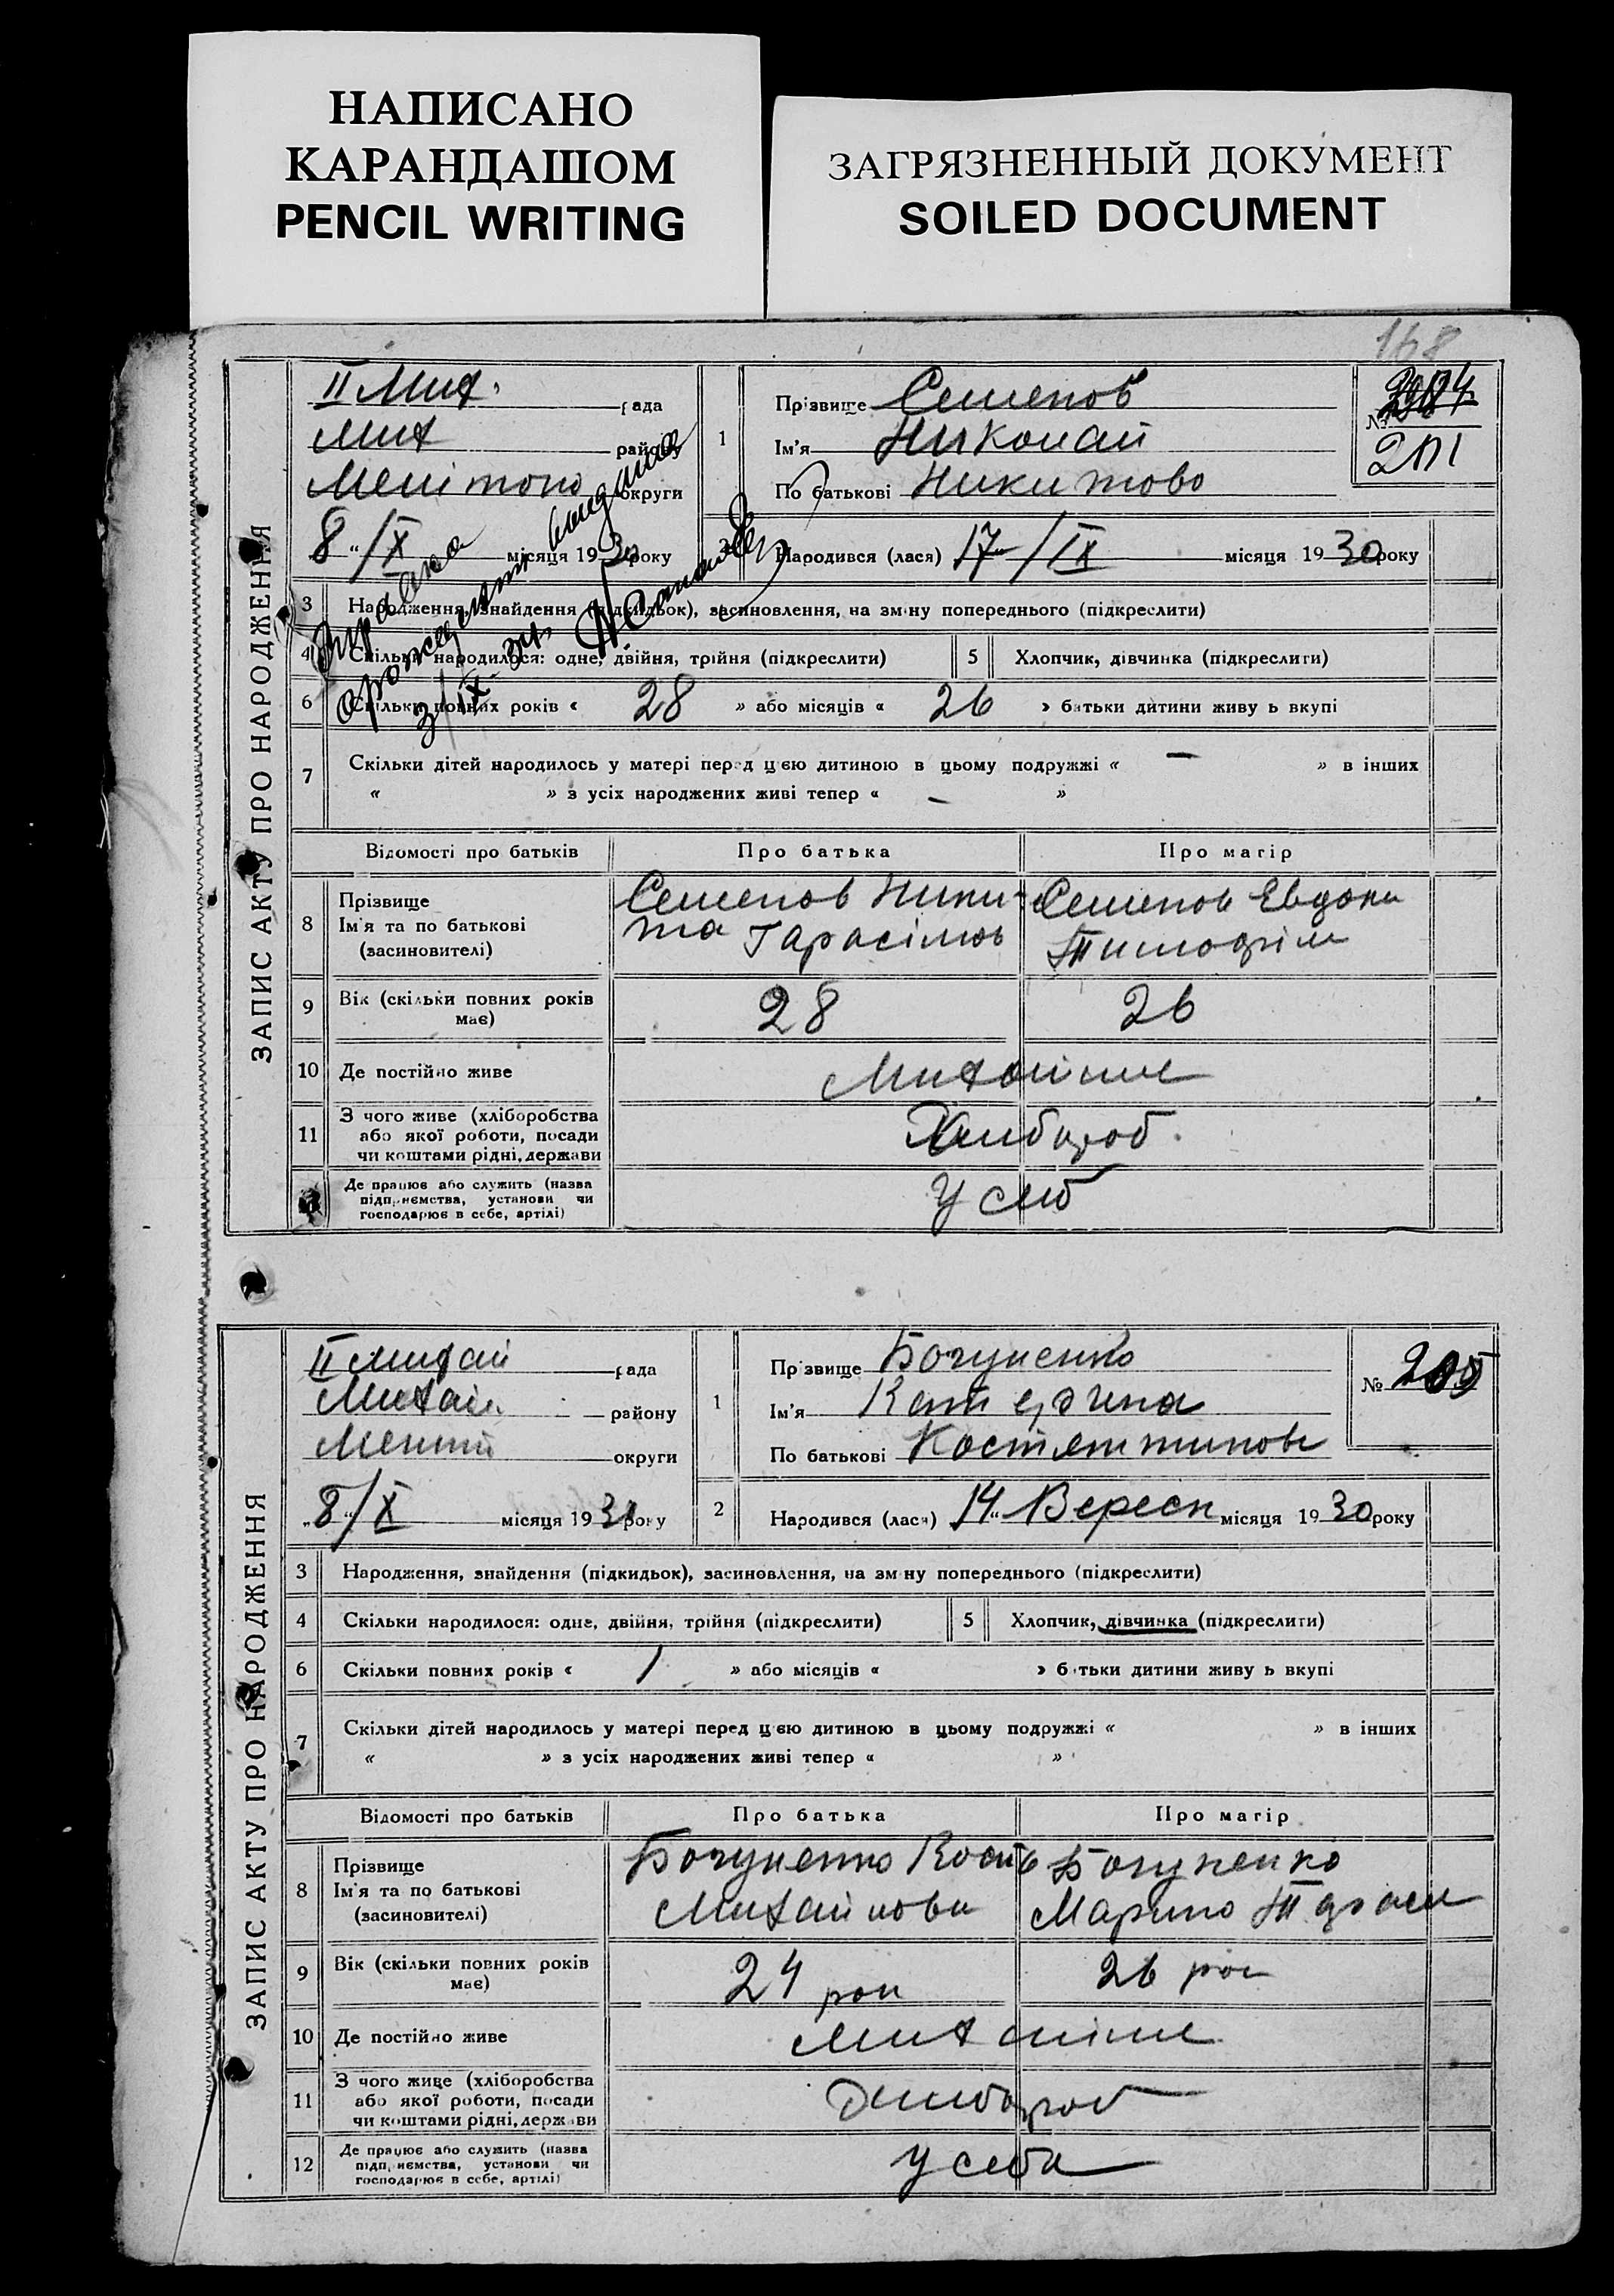 НАПИСАНО
КАРАНДАШОМ
PENCIL WRITING
ЗАГРЯЗНЕННЫЙ ДОКУМЕНТ
SOILED DOCUMENT
168
ЗАПИС АКТУ ПРО НАРОДЖЕННЯ
II Мих. рада
Мих району
Мелітопо округи
8 "/X місяця 1930 року
1
Прізвище Семенов
Ім'я Николай
По батькові Никитово
№
201
Народився (лася) 17 "/IX місяця 1930 року
3 Народження, знайдення (підкидьок), засиновлення, на зміну попереднього (підкреслити)
4 Скільки народилося: одне, двійня, трійня (підкреслити) 5 Хлопчик, дівчинка (підкреслити)
6 Скільки повних років « 28 » або місяців « 26 » батьки дитини живуть вкупі
7 Скільки дітей народилось у матері перед цією дитиною в цьому подружжі « — » в інших
« » з усіх народжених живі тепер « — »
Відомості про батьків Про батька Про матір
8 Прізвище
Ім'я та по батькові
(засиновителі)
Семенов Ники-
та Гарасімов
Семенов Евдоки
Тимофім
9 Вік (скільки повних років
має)
28 26
10 Де постійно живе
11 З чого живе (хліборобства
або якої роботи, посади
чи коштами рідні, держави
Хлибороб.
Де працює або служить (назва
підприємства, установи чи
господарює в себе, артілі)
У себ
ЗАПИС АКТУ ПРО НАРОДЖЕННЯ
II Михай рада
Михай району
Меліт округи
"8"/X місяця 1930 року
1
Прізвище Богуненко
Ім'я Катерина
По батькові Костянтинов
№ 205
2 Народився (лася) 14 " Вересн місяця 1930 року
3 Народження, знайдення (підкидьок), засиновлення, на зміну попереднього (підкреслити)
4 Скільки народилося: одне, двійня, трійня (підкреслити) 5 Хлопчик, дівчинка (підкреслити)
6 Скільки повних років « 1 » або місяців « » батьки дитини живуть вкупі
7 Скільки дітей народилось у матері перед цією дитиною в цьому подружжі « » в інших
« » з усіх народжених живі тепер « »
Відомості про батьків Про батька Про матір
8 Прізвище
Ім'я та по батькові
(засиновителі)
Богуненко Кость
Михайлови
Богуненко
Марино Тарасе
9 Вік (скільки повних років
має)
24 рок 26 рок
10 Де постійно живе
11 З чого живе (хліборобства
або якої роботи, посади
чи коштами рідні, держави
Хлибороб
12 Де працює або служить (назва
підприємства, установи чи
господарює в себе, артілі)
У себа